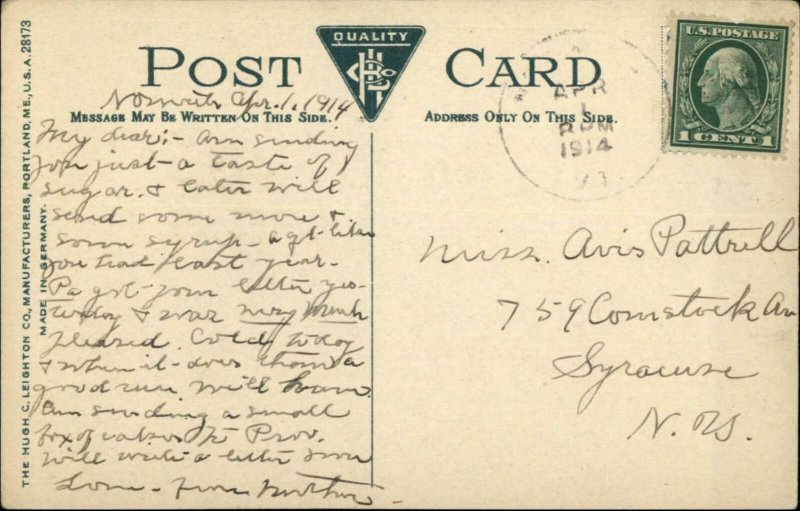 POST CARD
QUALITY
MESSAGE MAY BE WRITTEN ON THIS SIDE.
ADDRESS ONLY ON THIS SIDE.
THE HUGH C. LEIGHTON CO., MANUFACTURERS, PORTLAND, ME., U.S.A. 28173
MADE IN GERMANY.
U.S. POSTAGE
1 CENT 1
APR
1
PM
1914
Apr. 1, 1914
My dear;- Am sending
you just a taste of
sugar. & later will
send some more &
some syrup- a qt. like
you had last year.
Pa got your letter yes-
terday & was very much
pleased. Cold today
& when it does thaw a
good run will have.
Am sending a small
box of cakes to Prov.
Will write a letter soon
Love- From Mother-
Miss. Avis Pattrell
759 Comstock Av
Syracuse
N.Y.